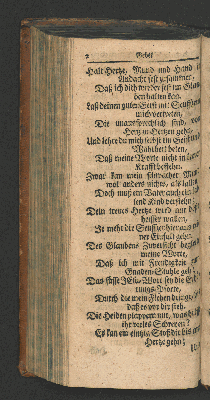 2 Gebet
Halt Hertze, Mund und Hand in
Andacht fest zusammen,
Daß ich dich wieder fest im Glauben
halten kan.
Laß deinen guten Geist mit Seufftzen
mich vertreten,
Die unaussprechlich sind, von
Hertz zu Hertzen gehn,
Und lehre du mich selbst im Geist und
Wahrheit beten,
Daß meine Worte nicht in leerer
Krafft bestehen.
Zwar kan mein schwacher Mund
wol anders nichts, als lallen,
Doch muß ein Vater auch ein lallend
Kind verstehn,
Dein treues Hertze wird nur
heisser wallen,
Je mehr die Seufftzer hier aus
gehn.
Des Glaubens Zuversicht
meine Worte,
Daß ich mit Freudigkeit
Gnaden-Stuhle geh,
Das süsse JEsus-Wort
Pforte,
Durch die mein Flehen dringt,
daß es vor dir steh.
Die Heiden plappern nur, was
ihr vieles Schreyen?
Es kan ein eintzig Stoßdir bis
Hertze gehn;